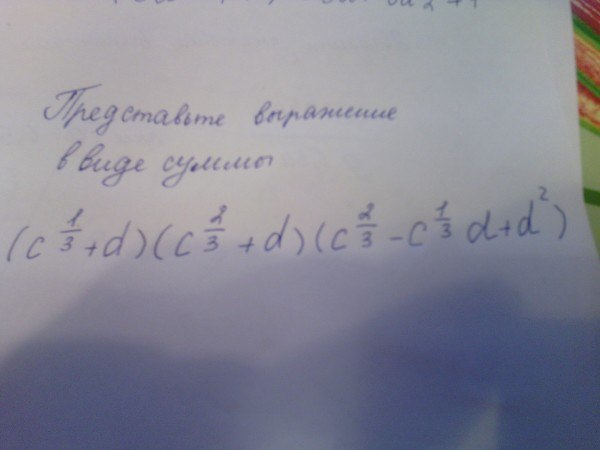 Представьте выражение
в виде суммы
(c^{1/3}+d)(c^{2/3}+d)(c^{2/3}-c^{1/3}d+d^2)